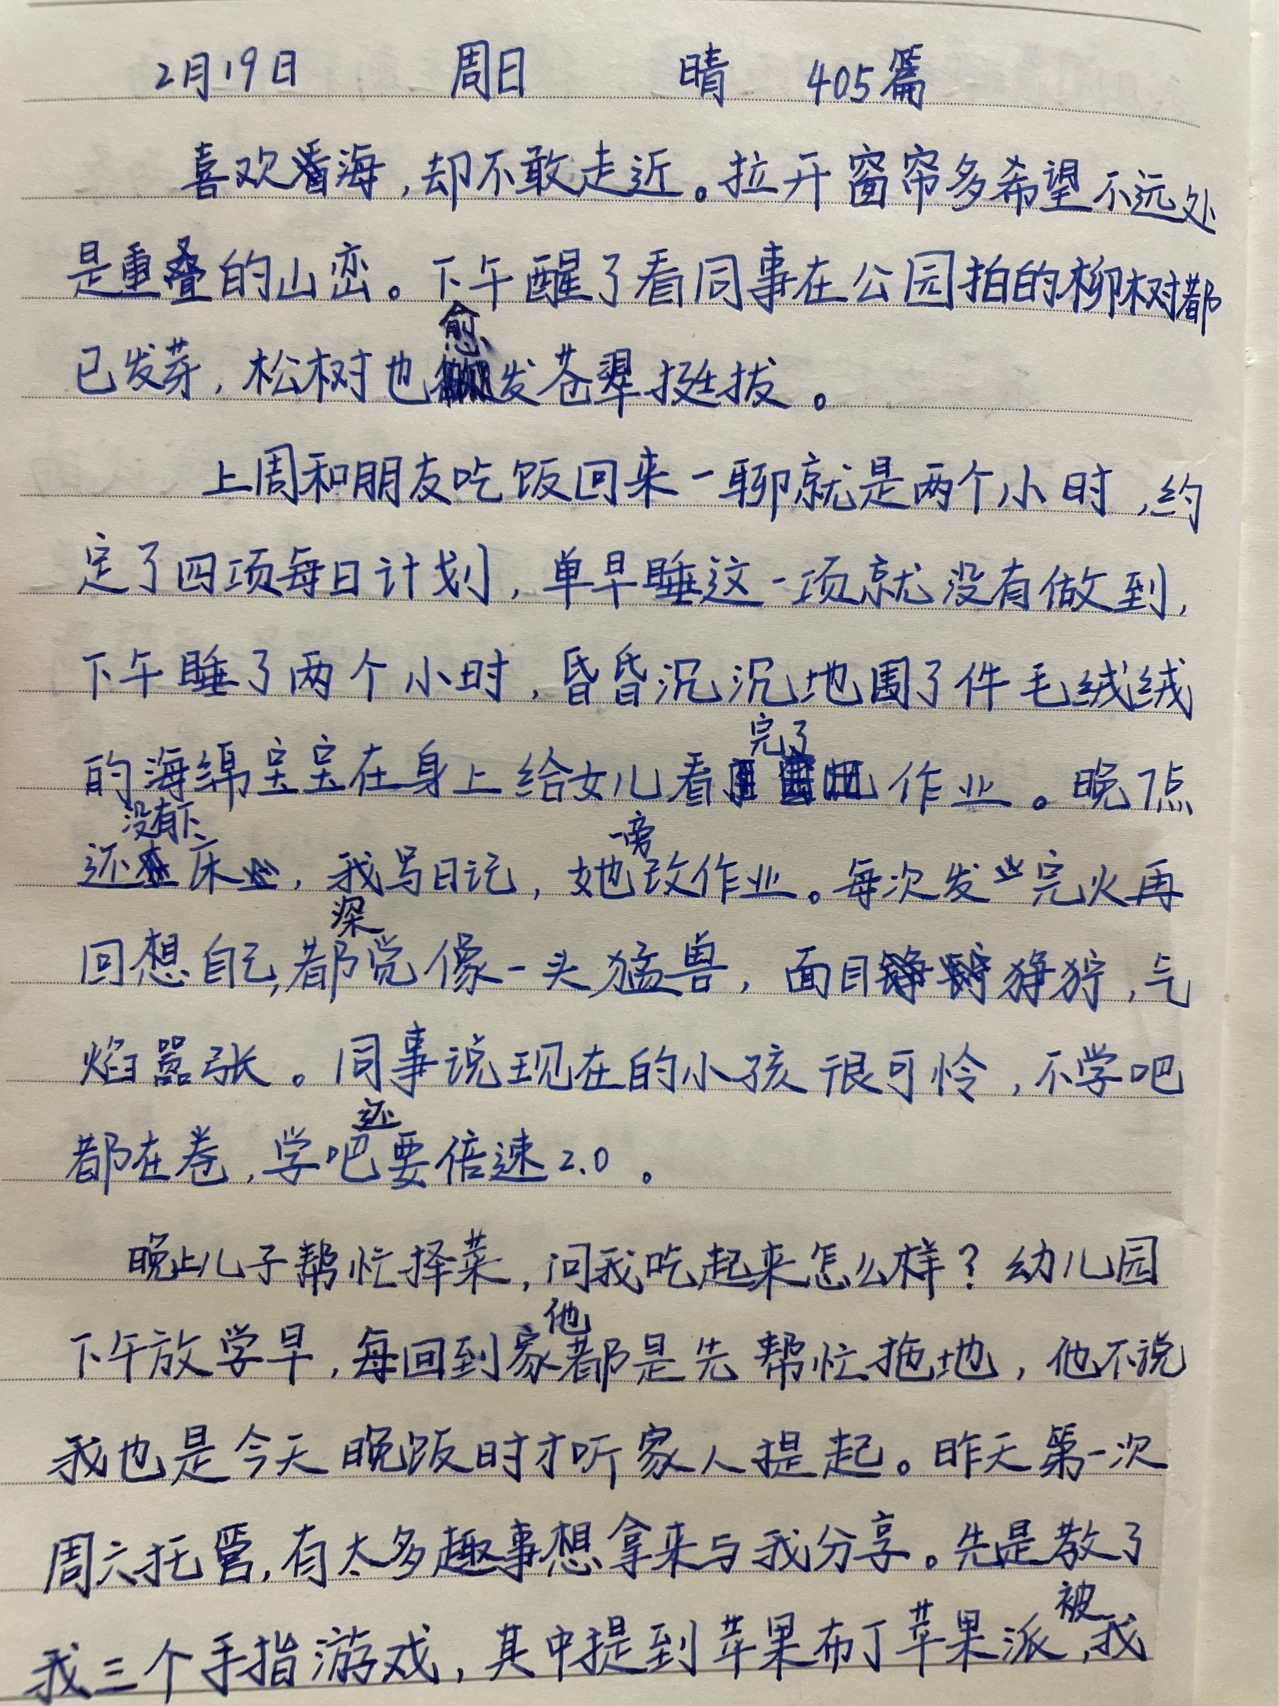 2月19日 周日 晴 405篇
喜欢看海，却不敢走近。拉开窗帘多希望不远处
是重叠的山峦。下午醒了看同事在公园拍的柳树都
已发芽，松树也愈发苍翠挺拔。
上周和朋友吃饭回来一聊就是两个小时，约
定了四项每日计划，单早睡这一项就没有做到，
下午睡了两个小时，昏昏沉沉地围了件毛绒绒
的海绵宝宝在身上给女儿看完了作业。晚7点
还没有下床，我写日记，她一旁改作业。每次发完火再
回想自己，都深觉像一头猛兽，面目狰狞，气
焰嚣张。同事说现在的小孩很可怜，不学吧
都在卷，学吧还要倍速2.0。
晚上儿子帮忙择菜，问我吃起来怎么样？幼儿园
下午放学早，每回到家他都是先帮忙拖地，他不说
我也是今天晚饭时才听家人提起。昨天第一次
周六托管，有太多趣事想拿来与我分享。先是教了
我三个手指游戏，其中提到苹果布丁苹果派，被我